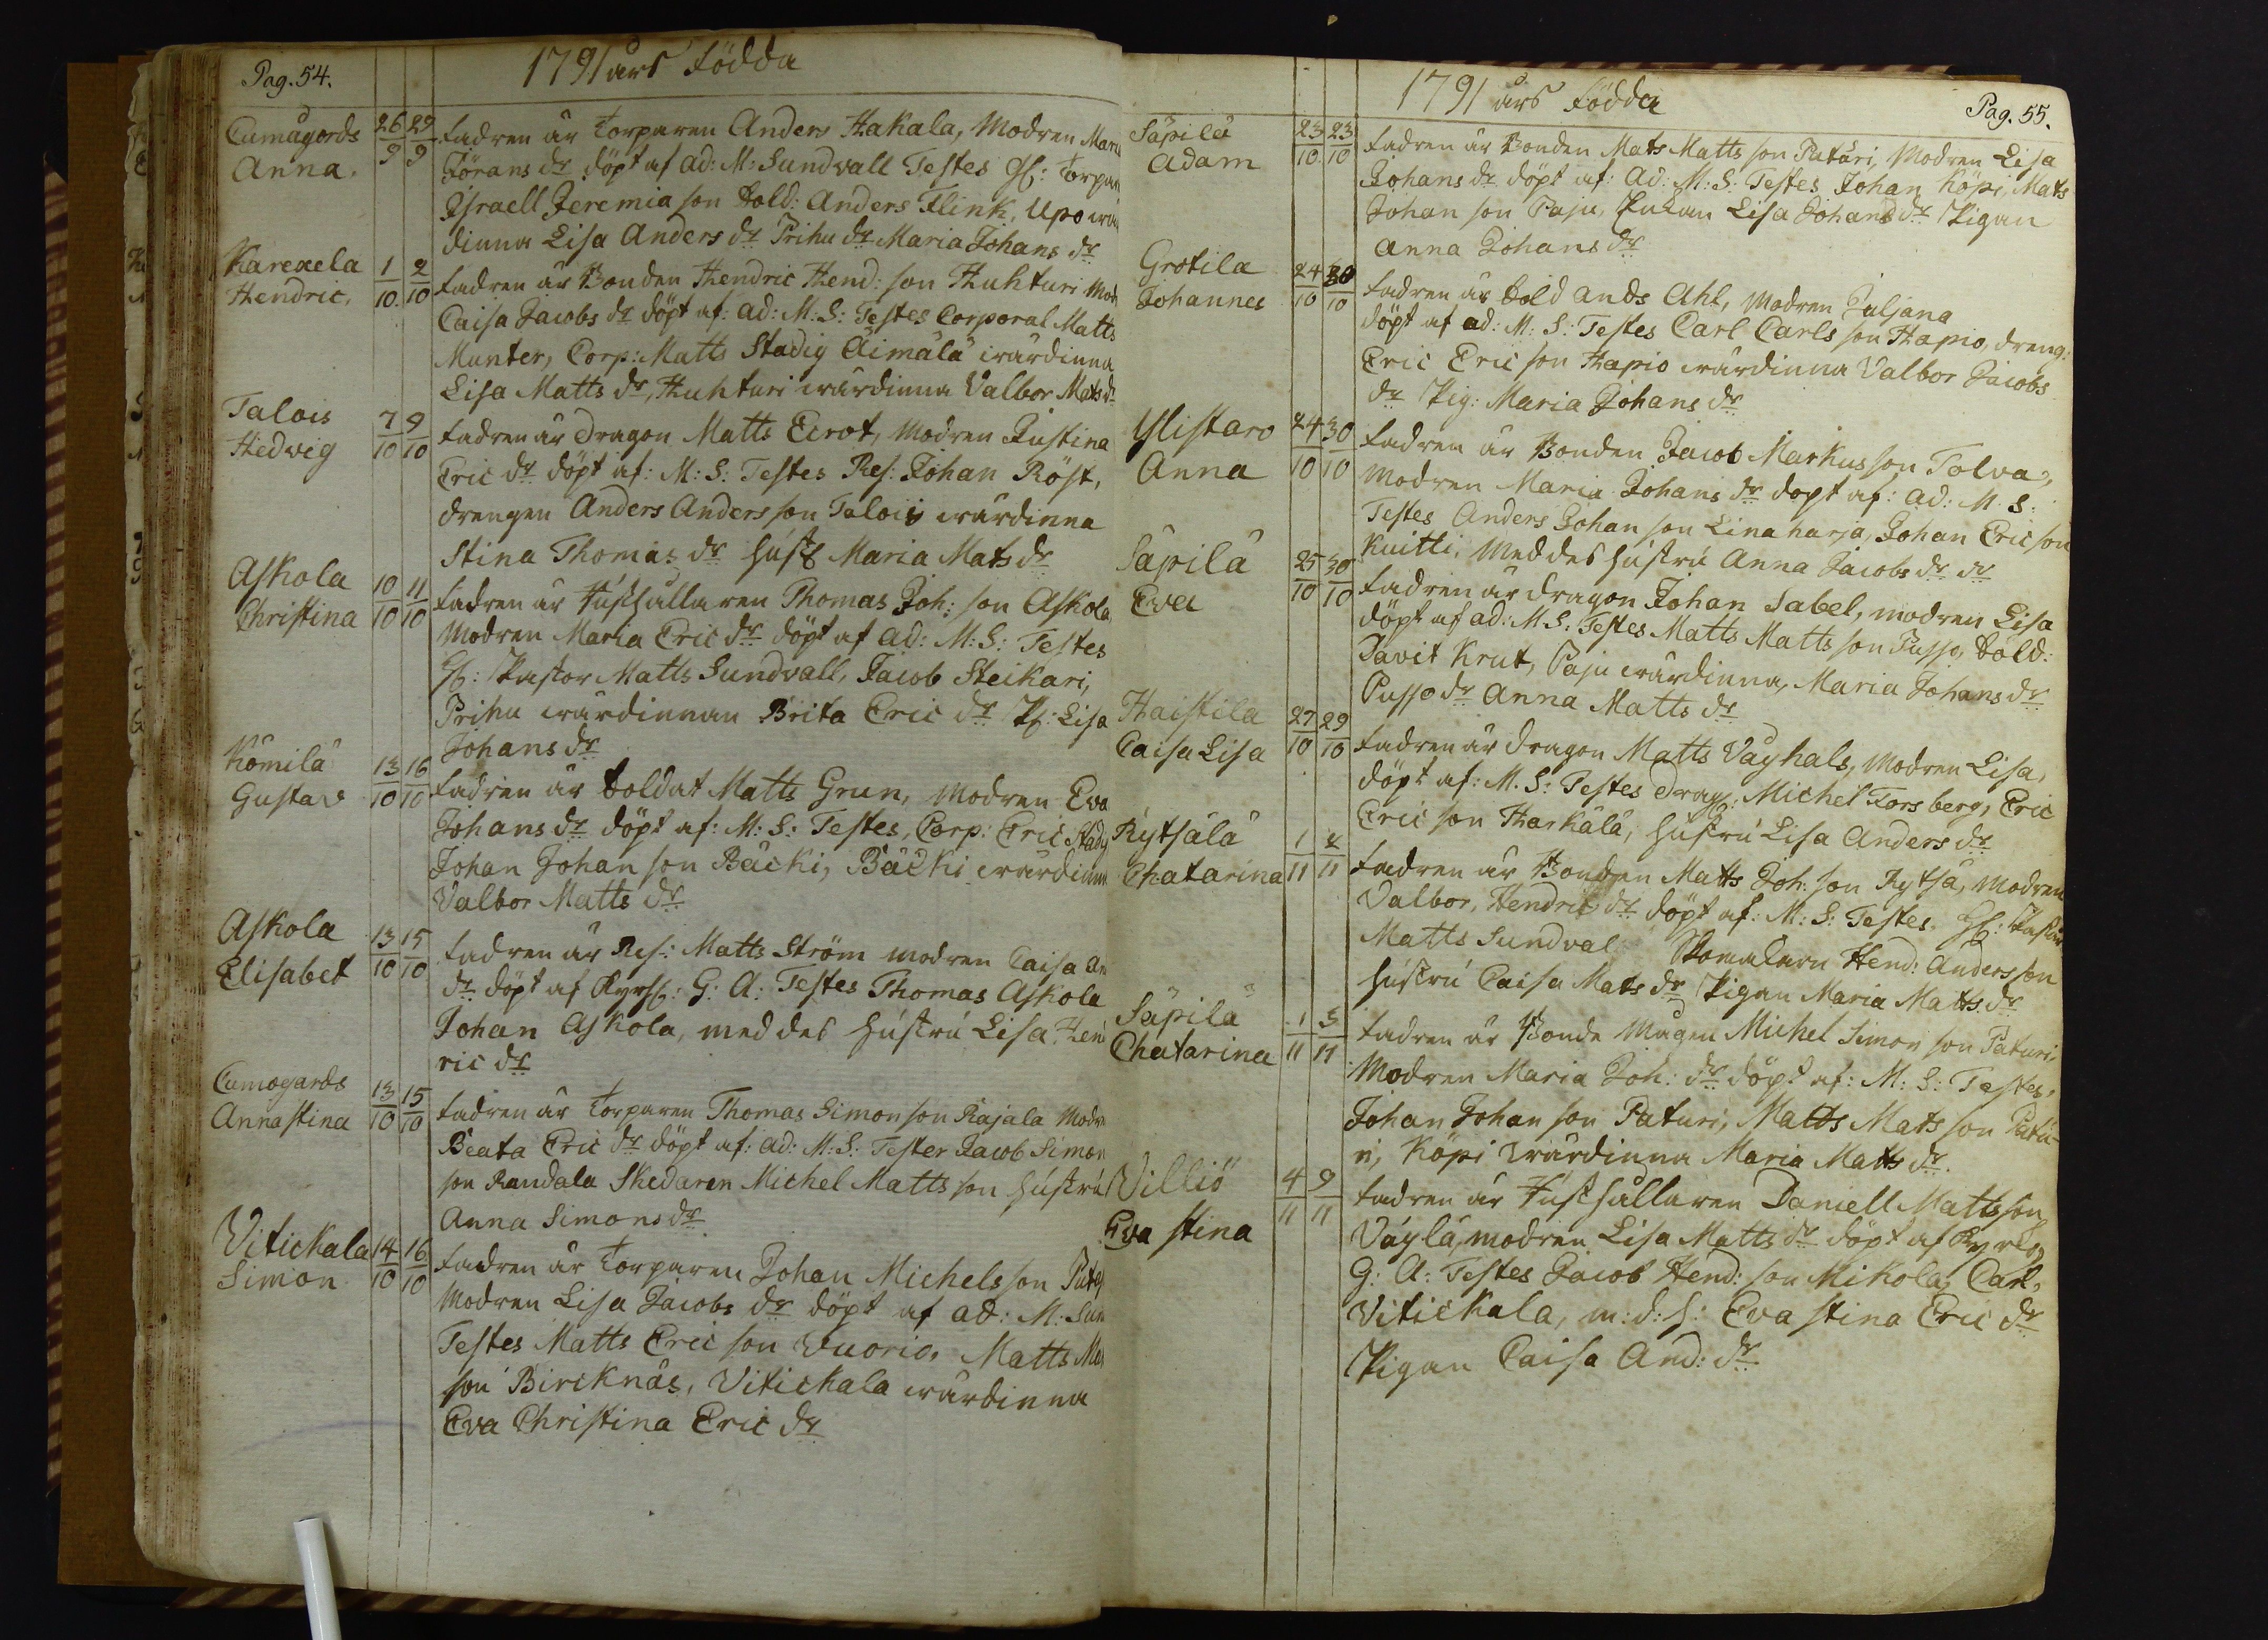 Pag. 54.
1791 års Födda
Cumågords 26/9 29/9 Fadren är Torparen Anders Hakala, Modren
Anna. Jörans dr döpt af ad: M: Sundvall Testes H: Torpar
Israell Jeremia son Sold: Anders Flink, Upo
dinna Lisa Anders dr Prihu dr Maria Johans dr
Karexela 1/10 2/10 Fadren är Bonden Hendric Hend: son Huhturi Mod
Hendric, Caisa Jacobs dr döpt af: ad: M: S: Testes Corporal Matts
Munter, Corp: Matts Stadig Äimälä wärdinna
Lisa Matts dr, Huhturi wärdinna Valbor Mats dr
Talois 7/10 9/10 Fadren är Dragon Matts Ecrot, Modren Justina
Hedvig Eric dr döpt af: M: S: Testes Res: Johan Röst,
drengen Anders Anders son Talois wärdinna
Stina Thomas dr Hust Maria Mats dr
Askola 10/10 11/10 Fadren är Hushållaren Thomas Joh: son Askola,
Christina Modren Maria Eric dr döpt af ad: M: S: Testes
H: Pastor Matts Sundvall, Jacob Steikari,
Prihu wärdinnan Brita Eric dr P: Lisa
Johans dr
Kömilä 13/10 16/10 Fadren är Soldat Matts Grun, Modren Eva
Gustav Johans dr döpt af: M: S: Testes, Corp: Eric Stadig
Johan Johan son Bäcki, Bäcki wärdinna
Valbor Matts dr
Askola 13/10 15/10 Fadren är Res: Matts Ström modren Caisa An
Elisabet dr döpt af Kyrh: G: A: Testes Thomas Askola
Johan Askola, med des Hustru Lisa Hen
ric dr
Cumogards 13/10 15/10 Fadren är Torparen Thomas Simon son Rajala Modr
Annastina Beata Eric dr döpt af: ad: M: S: Tester Jacob Simon
son Randala Skedaren Michel Matts son Hustru
Anna Simons dr
Vitickala 14/10 16/10 Fadren är Torparen Johan Michels son
Simon Modren Lisa Jacobs dr döpt af ad: M: Sun
Testes Matts Eric son Wuorio, Matts
son Bircknäs, Vitickala wärdinna
Eva Christina Eric dr
1791 års Födda
Pag. 55.
Säpilä 23/10 23/10 Fadren är Bonden Mats Matts son Paturi, Modren Lisa
Adam Johans dr döpt af: ad: M: S: Testes Johan Köpi, Mats
Johan son Paju, Lisa Johans dr Pigan
Anna Johans dr
Grotila 24/10 30/10 Fadren är Sold Ands Ahl, Modren Juljana
Johannes döpt af ad: M: S: Testes Carl Carls son Hapio, dreng:
Eric Eric son Hapio wärdinna Valbor Jacobs
dr Pig: Maria Johans dr
Ylistaro 24/10 30/10 Fadren är Bonden Jacob Markus son Tolva,
Anna Modren Maria Johans dr döpt af: ad: M: S:
Testes Anders Johan son Linaharja, Johan Eric son
Kuitti, Med des Hustru Anna Jacobs dr
Säpilä 25/10 30/10 Fadren är Dragon Johan Sabel, modren Lisa
Eva döpt af ad: M. S: Testes Matts Matts son Pusso, Sold:
Davit Krut, Paju wärdinna, Maria Johans dr
Pusso dr Anna Matts dr
Haistila 27/10 29/10 Fadren är Dragon Matts Väghals, Modren Lisa,
Caisa Lisa döpt af: M. S: Testes Drag: Michel Forsberg, Eric
Eric son Harkälä, Hustru Lisa Anders dr
Rytsälä 1/11 2/11 Fadren är Bonden Matts Joh: son Rytsä, Modren
Chatarina Valbor, Hendric dr döpt af: M: S: Testes. H: Pastor
Matts Sundval. Hend: Anders son
Hustru Caisa Mats dr Pigan Maria Matts dr
Säpilä 1/11 5/11 Fadren är Bonde Mågen Michel Simon son Paturi,
Chatarina Modren Maria Joh: dr döpt af: M: S: Testes,
Johan Johan son Paturi, Matts Mats son Patu-
ri, Köpi Wärdinna Maria Matts dr.
Villiö 4/11 9/11 Fadren är Husthållaren Daniell Matts son
Eva stina Väylä, modren Lisa Matts dr döpt af Kyrko
G: A: Testes Jacob Hend: son Mikola, Carl,
Vitickala, m: d: H: Eva stina Eric dr
Pigan Caisa And: dr